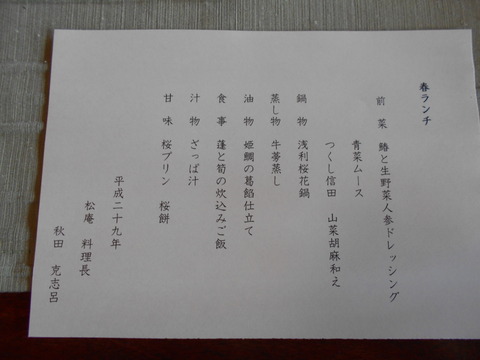 春ランチ
前菜 鰆と生野菜人参ドレッシング
青菜ムース
つくし信田 山菜胡麻和え
鍋物 浅利桜花鍋
蒸し物 牛蒡蒸し
油物 姫鯛の葛餡仕立て
食事 蓬と筍の炊込みご飯
汁物 ざっぱ汁
甘味 桜プリン 桜餅
平成二十九年
松庵 料理長
秋田 克志呂